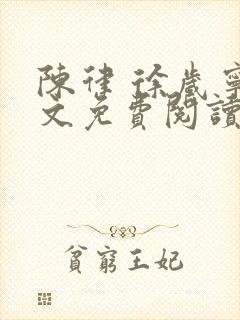 陳律 徐歲寧
文免費閱讀
貧窮王妃